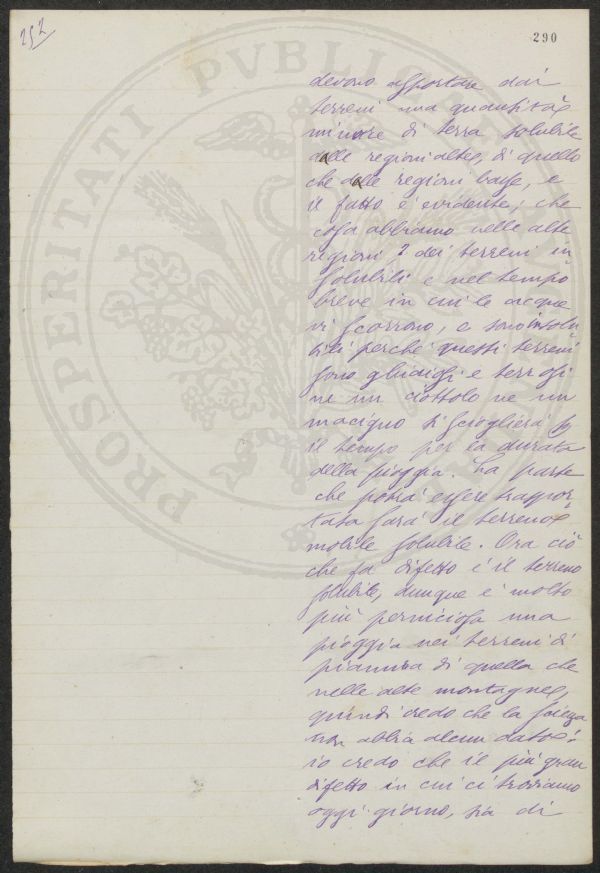 252
290
PROSPERITATI PVBLICAE
devono apportare dai
terreni una quantità
minore di terra solubile
dalle regioni alte, di quello
che dalle regioni basse, e
il fatto è evidente; che
cosa abbiamo nelle alte
regioni? dei terreni in
solubili e nel tempo
breve in cui le acque
vi scorrono, e sono insolu
bili perché questi terreni
sono ghiaiosi e
ne un ciottolo ne un
macigno si scioglierà
il tempo per la durata
della pioggia. La parte
che potrà essere traspor
tata sarà il terreno
mobile solubile. Ora ciò
che fa difetto è il terreno
solubile, dunque è molto
più perniciosa una
pioggia nei terreni di
pianura di quella che
nelle alte montagne,
quindi credo che la
non abbia alcun dato:
io credo che il più gran
difetto in cui ci troviamo
oggi giorno, sia di